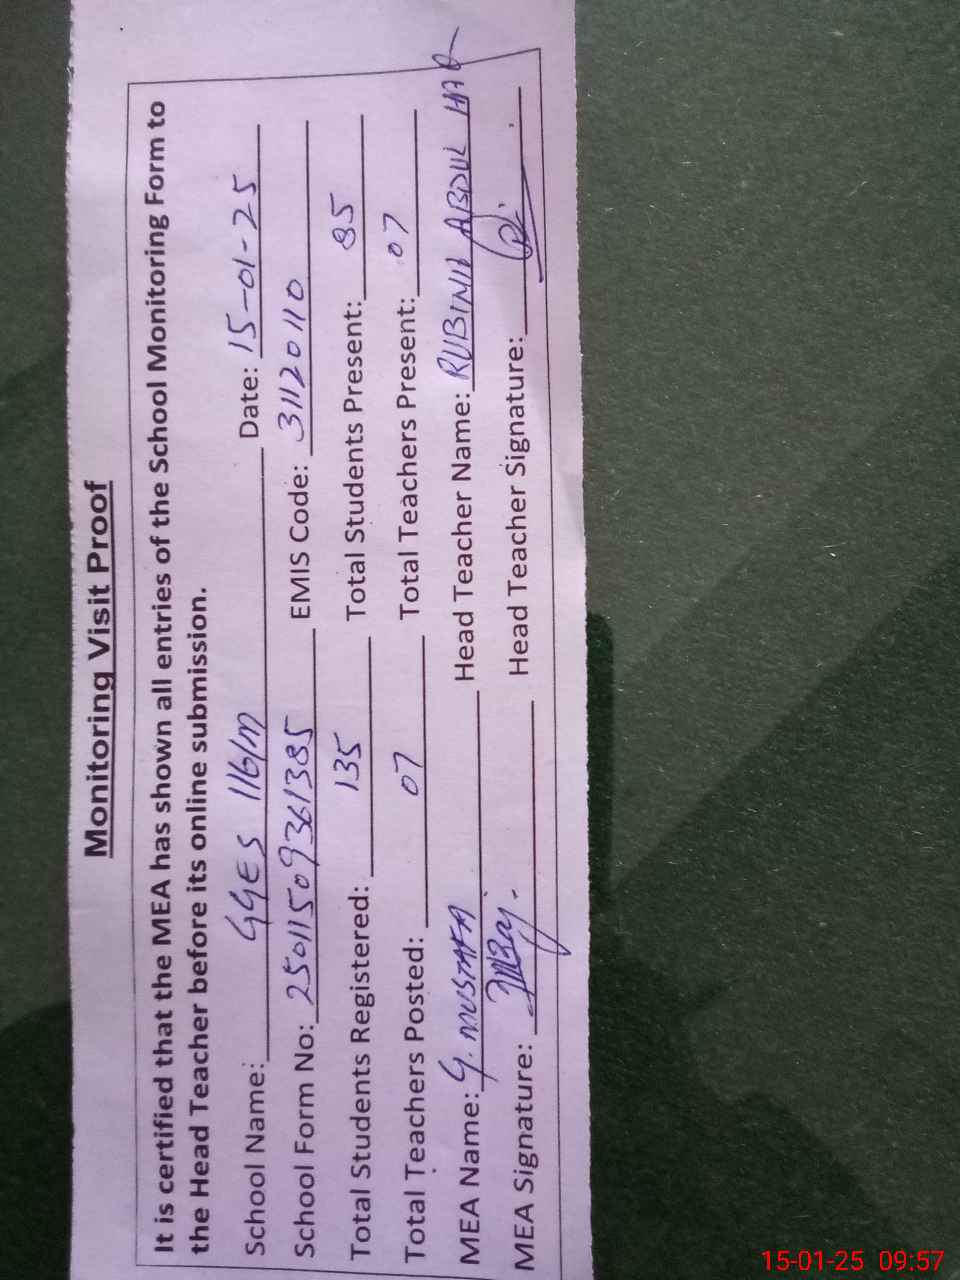 Monitoring Visit Proof
It is certified that the MEA has shown all entries of the School Monitoring Form to
the Head Teacher before its online submission.
School Name: GGES 116/M Date: 15-01-25
School Form No: 25011509361385 EMIS Code: 31120110
Total Students Registered: 135 Total Students Present: 85
Total Teachers Posted: 07 Total Teachers Present: 07
MEA Name: G. MUSTAFA Head Teacher Name: RUBINA ABDUL HAQ
MEA Signature: Head Teacher Signature:
15-01-25 09:57